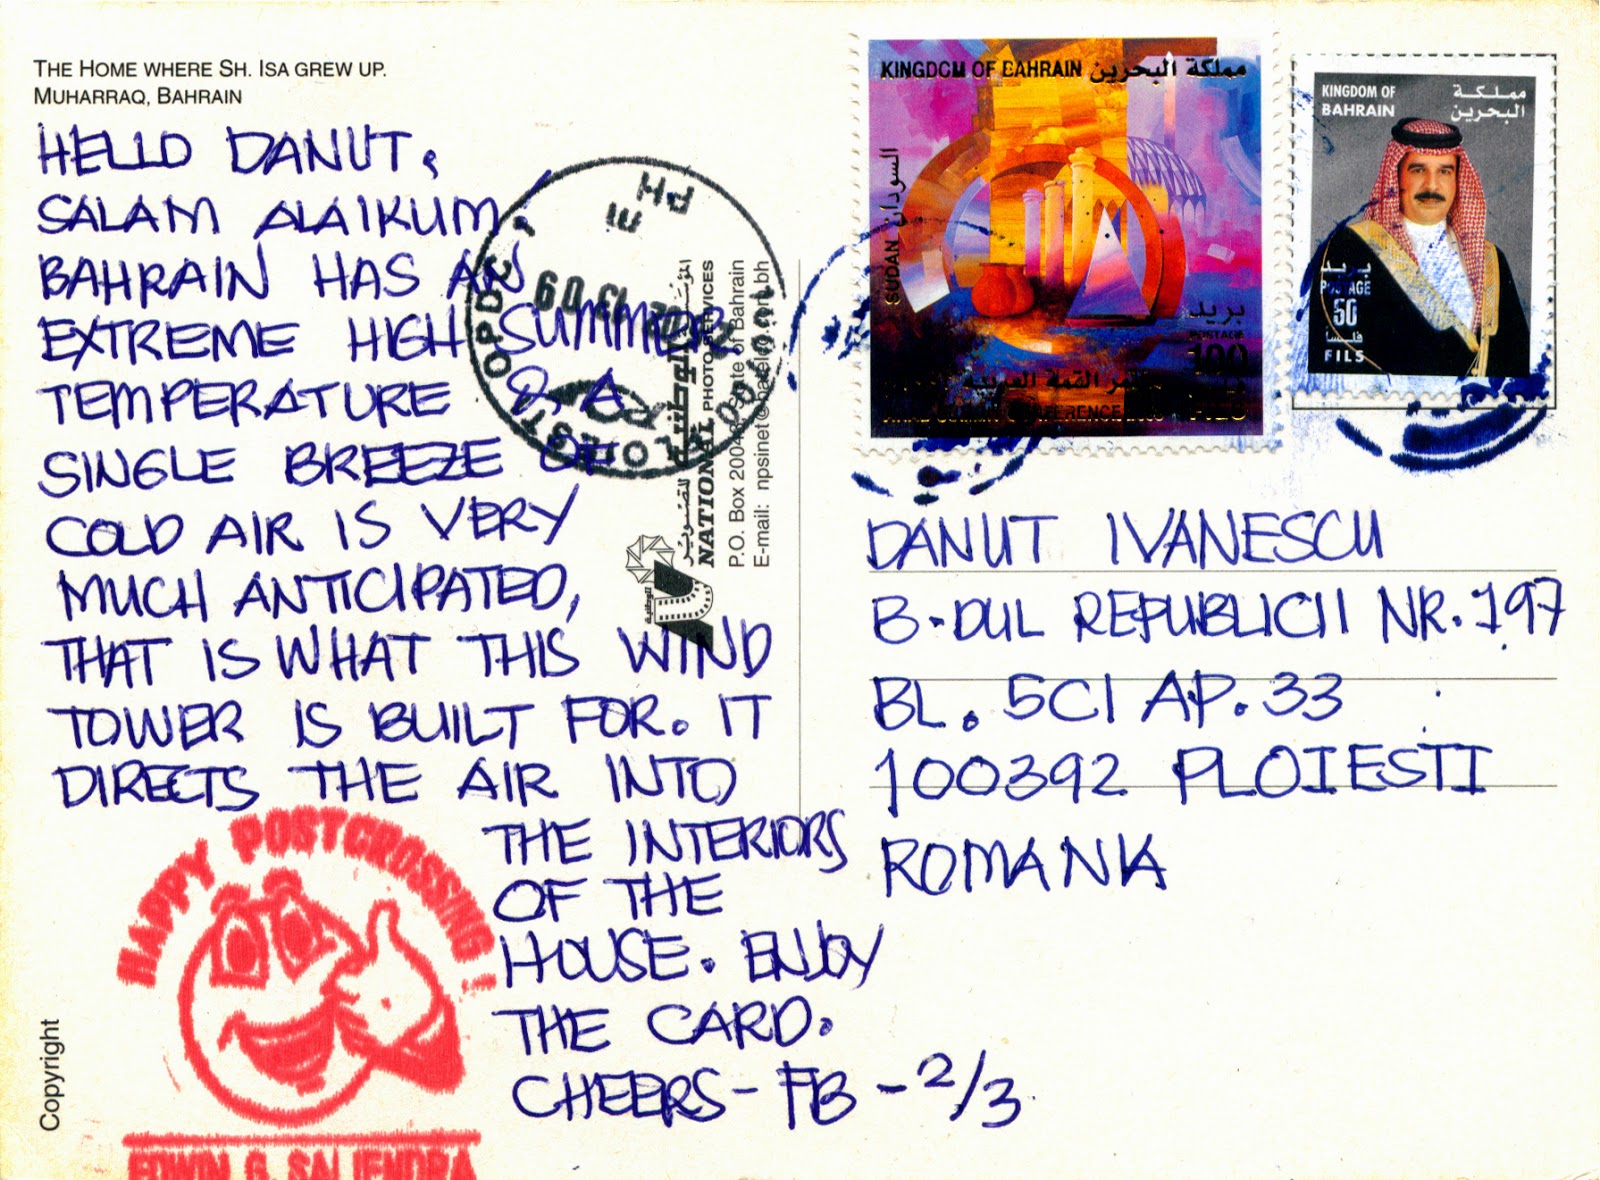 THE HOME WHERE SH. ISA GREW UP.
MUHARRAQ, BAHRAIN
HELLO DANUT,
SALAM ALAIKUM!
BAHRAIN HAS AN
EXTREME HIGH SUMMER
TEMPERATURE & A
SINGLE BREEZE OF
COLD AIR IS VERY
MUCH ANTICIPATED,
THAT IS WHAT THIS WIND
TOWER IS BUILT FOR. IT
DIRECTS THE AIR INTO
THE INTERIORS
OF THE
HOUSE. ENJOY
THE CARD.
CHEERS - FB - 2/3
HAPPY POSTCROSSING!
EDWIN G. SAJENDRA
Copyright
PLOIESTI
NATIONAL PHOTO SERVICES
P.O. Box State of Bahrain
E-mail:
KINGDOM OF BAHRAIN مملكة البحرين
SUDAN السودان
بريد
POSTAGE
100
KINGDOM OF
BAHRAIN
مملكة
البحرين
بريد
POSTAGE
50
فلسا
FILS
DANUT IVANESCU
B-DUL REPUBLICII NR. 197
BL. 5C1 AP. 33
100392 PLOIESTI
ROMANIA